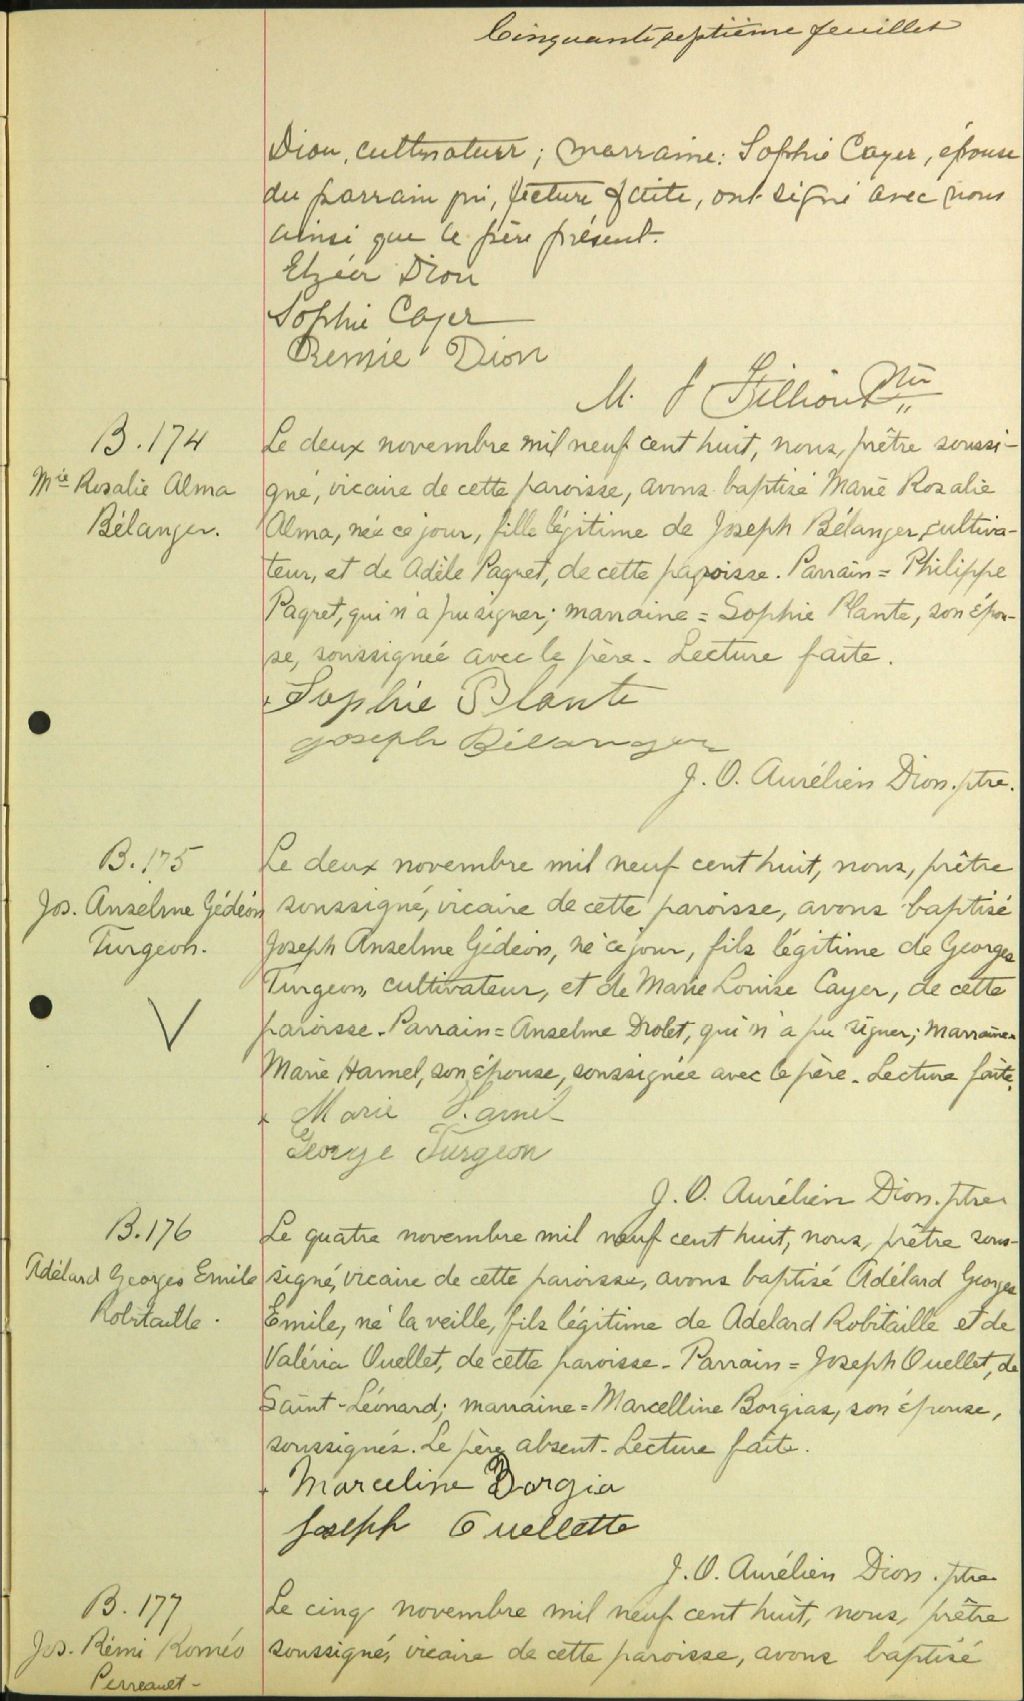 Cinquante septième feuillet
Dion, cultivateur; marraine: Sophie Cayer, épouse
du parrain qui, lecture faite, ont signé avec nous
ainsi que le père présent.
Elzéar Dion
Sophie Cayer
Remie Dion
M. J Fillion Ptre
B. 174
Mie Rosalie Alma
Bélanger.
Le deux novembre mil neuf cent huit, nous, prêtre soussi-
gné, vicaire de cette paroisse, avons baptisé Marie Rosalie
Alma, née ce jour, fille légitime de Joseph Bélanger, cultiva-
teur, et de Adèle Paquet, de cette paroisse. Parrain = Philippe
Paquet, qui n'a pu signer; marraine = Sophie Plante, son épou-
se, soussignée avec le père - Lecture faite.
Sophie Plante
Joseph Bélanger
J. O. Aurélien Dion. ptre.
B. 175
Jos. Anselme Gédéon
Turgeon.
Le deux novembre mil neuf cent huit, nous, prêtre
soussigné, vicaire de cette paroisse, avons baptisé
Joseph Anselme Gédéon, né ce jour, fils légitime de Georges
Turgeon, cultivateur, et de Marie Louise Cayer, de cette
paroisse - Parrain = Anselme Drolet, qui n'a pu signer; Marraine=
Marie Hamel, son épouse, soussignée avec le père - Lecture faite.
Marie Hamel
George Turgeon
J. O. Aurélien Dion. ptre
B. 176
Adélard Georges Emile
Robitaille.
Le quatre novembre mil neuf cent huit, nous, prêtre sous-
signé, vicaire de cette paroisse, avons baptisé Adélard Georges
Emile, né la veille, fils légitime de Adelard Robitaille et de
Valéria Ouellet, de cette paroisse - Parrain = Joseph Ouellet, de
Saint-Léonard; marraine = Marcelline Borgias, son épouse,
soussignés. Le père absent - Lecture faite.
Marceline Borgia
Joseph Ouellette
J. O. Aurélien Dion. ptre
B. 177
Jos. Rémi Roméo
Perreault -
Le cinq novembre mil neuf cent huit, nous, prêtre
soussigné, vicaire de cette paroisse, avons baptisé